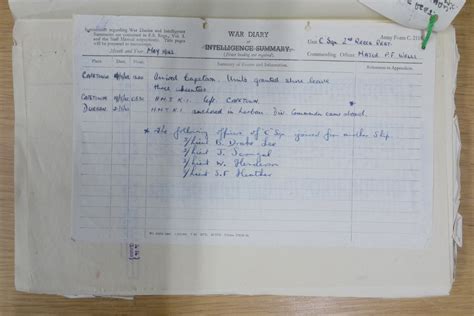 Instructions regarding War Diaries and Intelligence
Summaries are contained in F.S. Regs., Vol. I.
and the Staff Manual respectively. Title pages
will be prepared in manuscript.
Month and Year
WAR DIARY
or
INTELLIGENCE SUMMARY.
(Erase heading not required).
Army Form C.
Unit C Sqn 2nd Recce Regt.
Commanding Officer Major P.F. Wells
Place Date Hour Summary of Events and Information References to Appendices
Capetown Arrived Capetown. Units granted shore leave
three
Capetown H.M.T. K.1. left CAPETOWN.
Durban H.M.T. K.1. anchored in harbour. Div. Commander came aboard.
* The following officers of C Sqn joined from another ship
2/Lieut B. Drake Lee
2/Lieut J.
2/Lieut W. Henderson
2/Lieut S.F. Heather